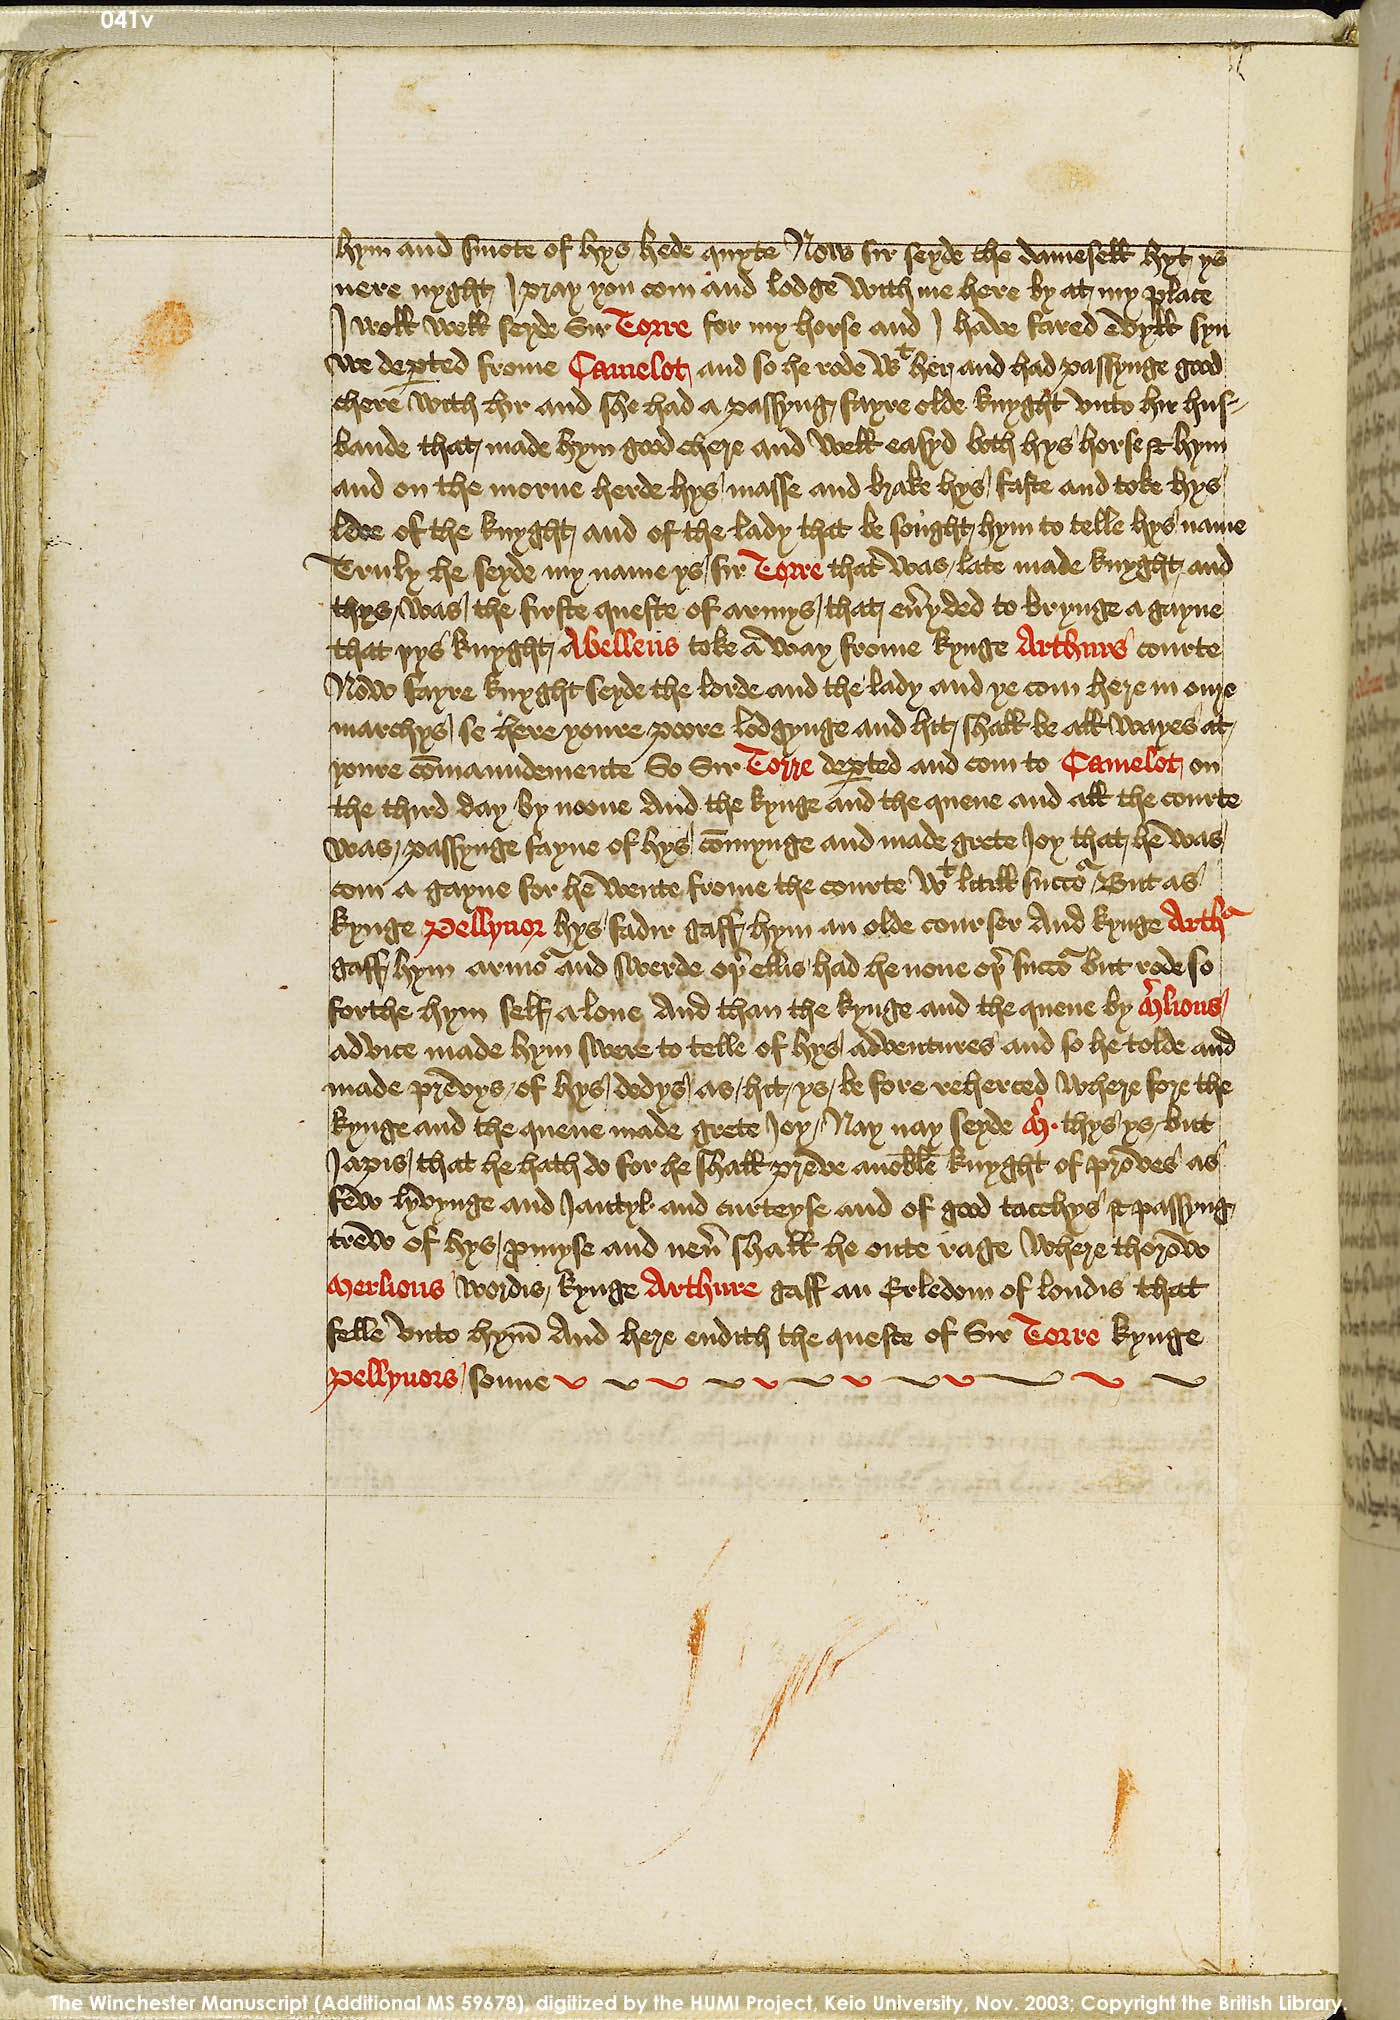 041v
hym and smote of hys hede quyte Now sir seyde the damesell hyt ys
nere nyght I pray you com and lodge with me here by at my place
I woll well seyde Sir Torre for my horse and I have fared evyll syn
we dep̱ted frome Camelot and so he rode wᵗ her and had passynge good
chere with hir and she had a passyng fayre olde knyght vnto hir hus-
bande that made hym good chere and well easyd both hys horse & hym
and on the morne herde hys masse and brake hys faste and toke hys
leve of the knyght and of the lady that be sought hym to telle hys name
Truly he seyde my name ys sir Torre that was late made knyght and
thys was the firste queste of armys that eu̓ y ded to brynge a gayne
that þys knyght Abelleus toke a way frome kynge Arthurs courte
Now fayre knyght seyde the lorde and the lady and ye com here in oure
marchys se here youre poore lodgynge and hit shall be all wayes at
youre cōmaundemente So Sir Torre dep̱ted and com to Camelot on
the third day by noone And the kynge and the quene and all the courte
was passynge fayne of hys cōmynge and made grete Joy that he was
com a gayne for he wente frome the courte wᵗ litill succoʳ But as
kynge Pellynor hys fadir gaff hym an olde courser And kynge Arthʳ
gaff hym armoʳ and swerde oþ̓ ellis had he none oþ̓ succoʳ but rode so
forthe hym self a lone And than the kynge and the quene by M̓lions
advice made hym swere to telle of hys adventures and so he tolde and
made prevys of hys dedys as hit ys be fore reherced where fore the
kynge and the quene made grete Joy Nay nay seyde M̓. thys ys but
Japis that he hath do for he shall preve a noble knyght of proues as
few lyvynge and Jantyl and curteyse and of good tacchys & passyng
trew of hys ꝓmyse and neu̓ shall he oute rage where thorow
Merlions wordis kynge Arthure gaff an Erledom of londis that
felle vnto hym̄ And here endith the queste of Sir Torre kynge
Pellynors sonne
The Winchester Manuscript (Additional MS 59678), digitized by the HUMI Project, Keio University, Nov. 2003; Copyright the British Library.